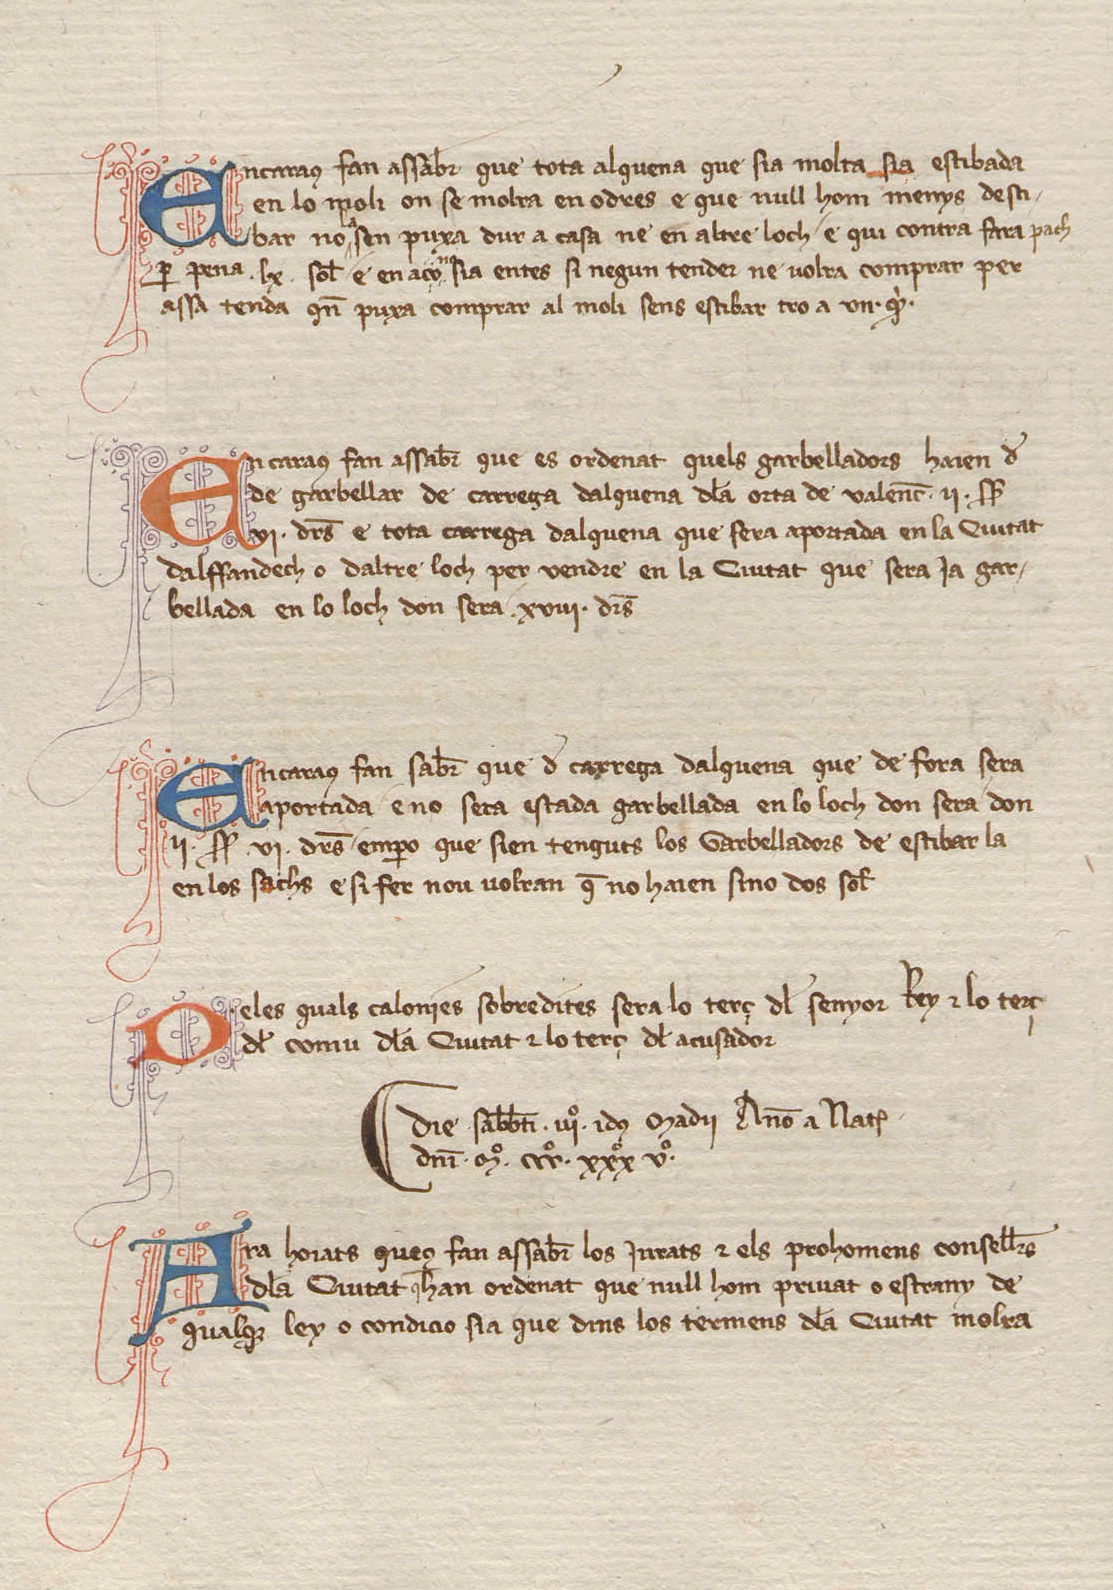 Encaraq̃ fan assab̃r que tota alquena que sia molta sia estibada
en lo moli on se molra en odres e que null hom menys desti-
bar no lan sen puxa dur a casa ne en altre loch e qui contra fara pach
ꝑ pena .lx. sol̃ e en aço no sia entes si negun tender ne volra comprar per
assa tenda qñ puxa comprar al moli sens estibar tro a vn. q̃r.
Encaraq̃ fan assab̃r que es ordenat quels garbelladors haien d̃
de garbellar de carrega dalquena dl̃a orta de valenc̃ .ij. ss̃
vj. drs̃ e tota carrega dalquena que sera aportada en la Ciutat
dalffandech o daltre loch per vendre en la Ciutat que sera ja gar-
bellada en lo loch don sera .xviij. drs̃
Encaraq̃ fan sab̃r que d̃ carrega dalquena que de fora sera
aportada e no sera estada garbellada en lo loch don sera don
ij. ss̃ .vj. drs̃ emꝑo que sien tenguts los Garbelladors de estibar la
en los sachs e si fer nou volran q̃ no haien sino dos sol̃
Deles quals calonies sobredites sera lo terç dl̃ senyor Rey ⁊ lo terç
dl̃ comu dl̃a Ciutat ⁊ lo terç dl̃ acusador
Die sab̃bti .iijº. idꝰ Madij Anõ a Nat̃
dnĩ .Mº. cccº. xxxº vº.
Ara hoiats queç fan assab̃r los Jurats ⁊ els prohomens consell̃rs
dl̃a Ciutat q̃ han ordenat que null hom priuat o estrany de
qualq̃ ley o condicio sia que dins los termens dl̃a Ciutat molra